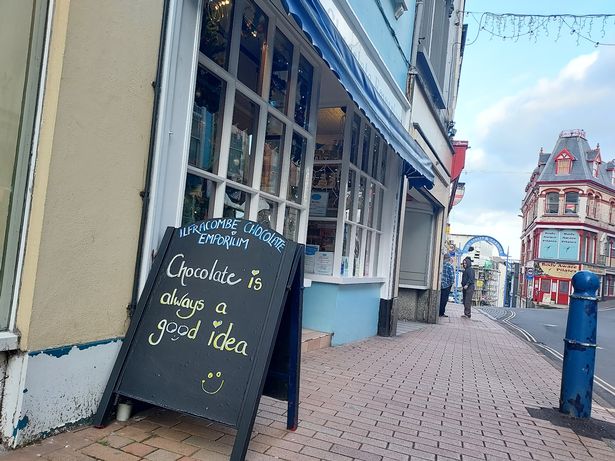 ILFRACOMBE CHOCOLATE
EMPORIUM
Chocolate is
always a
good idea